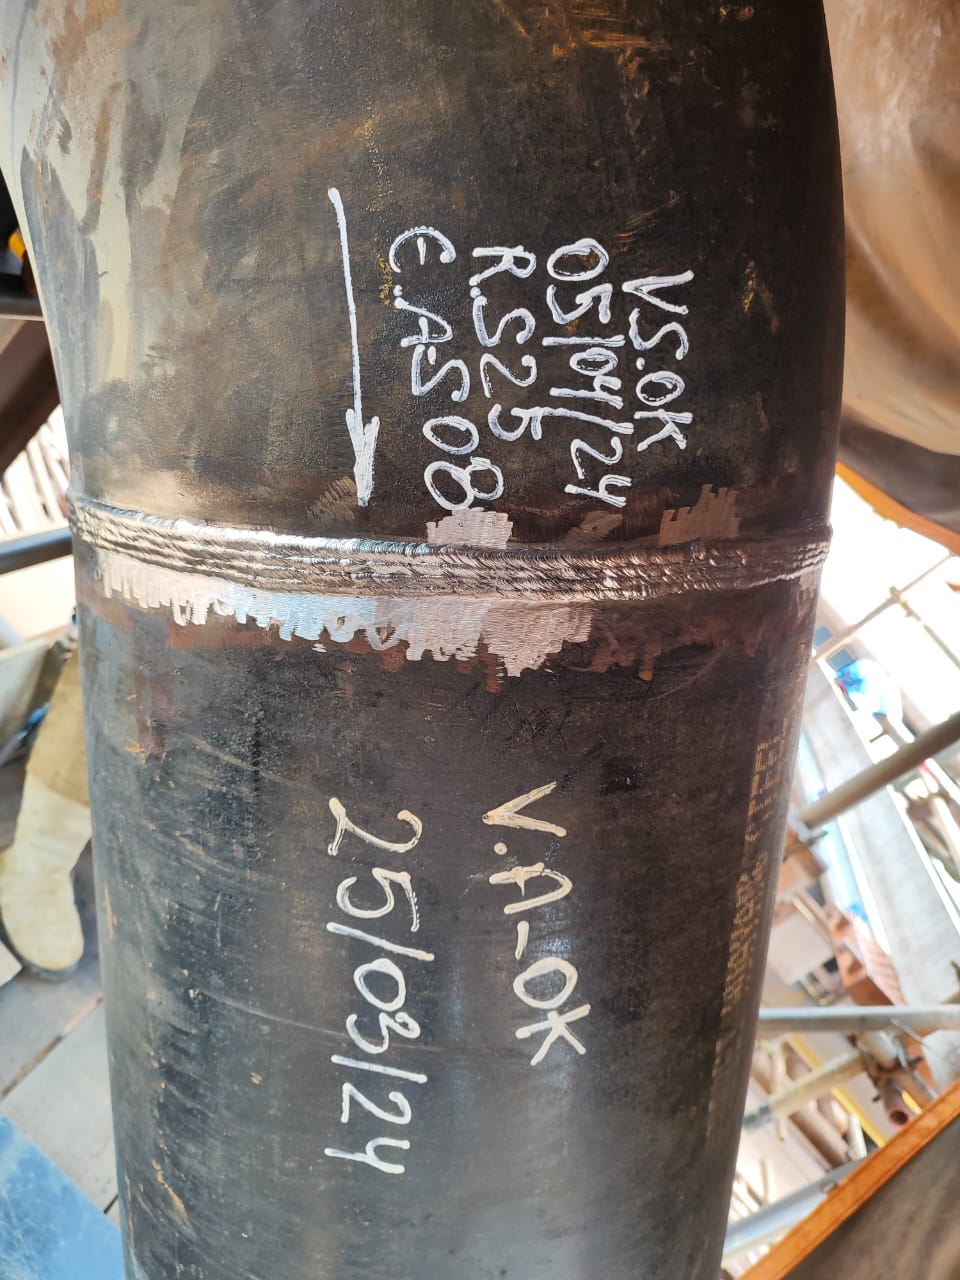 V.S.OK
05/04/24
R.S25
E.A.S08
V.A-OK
25/03/24